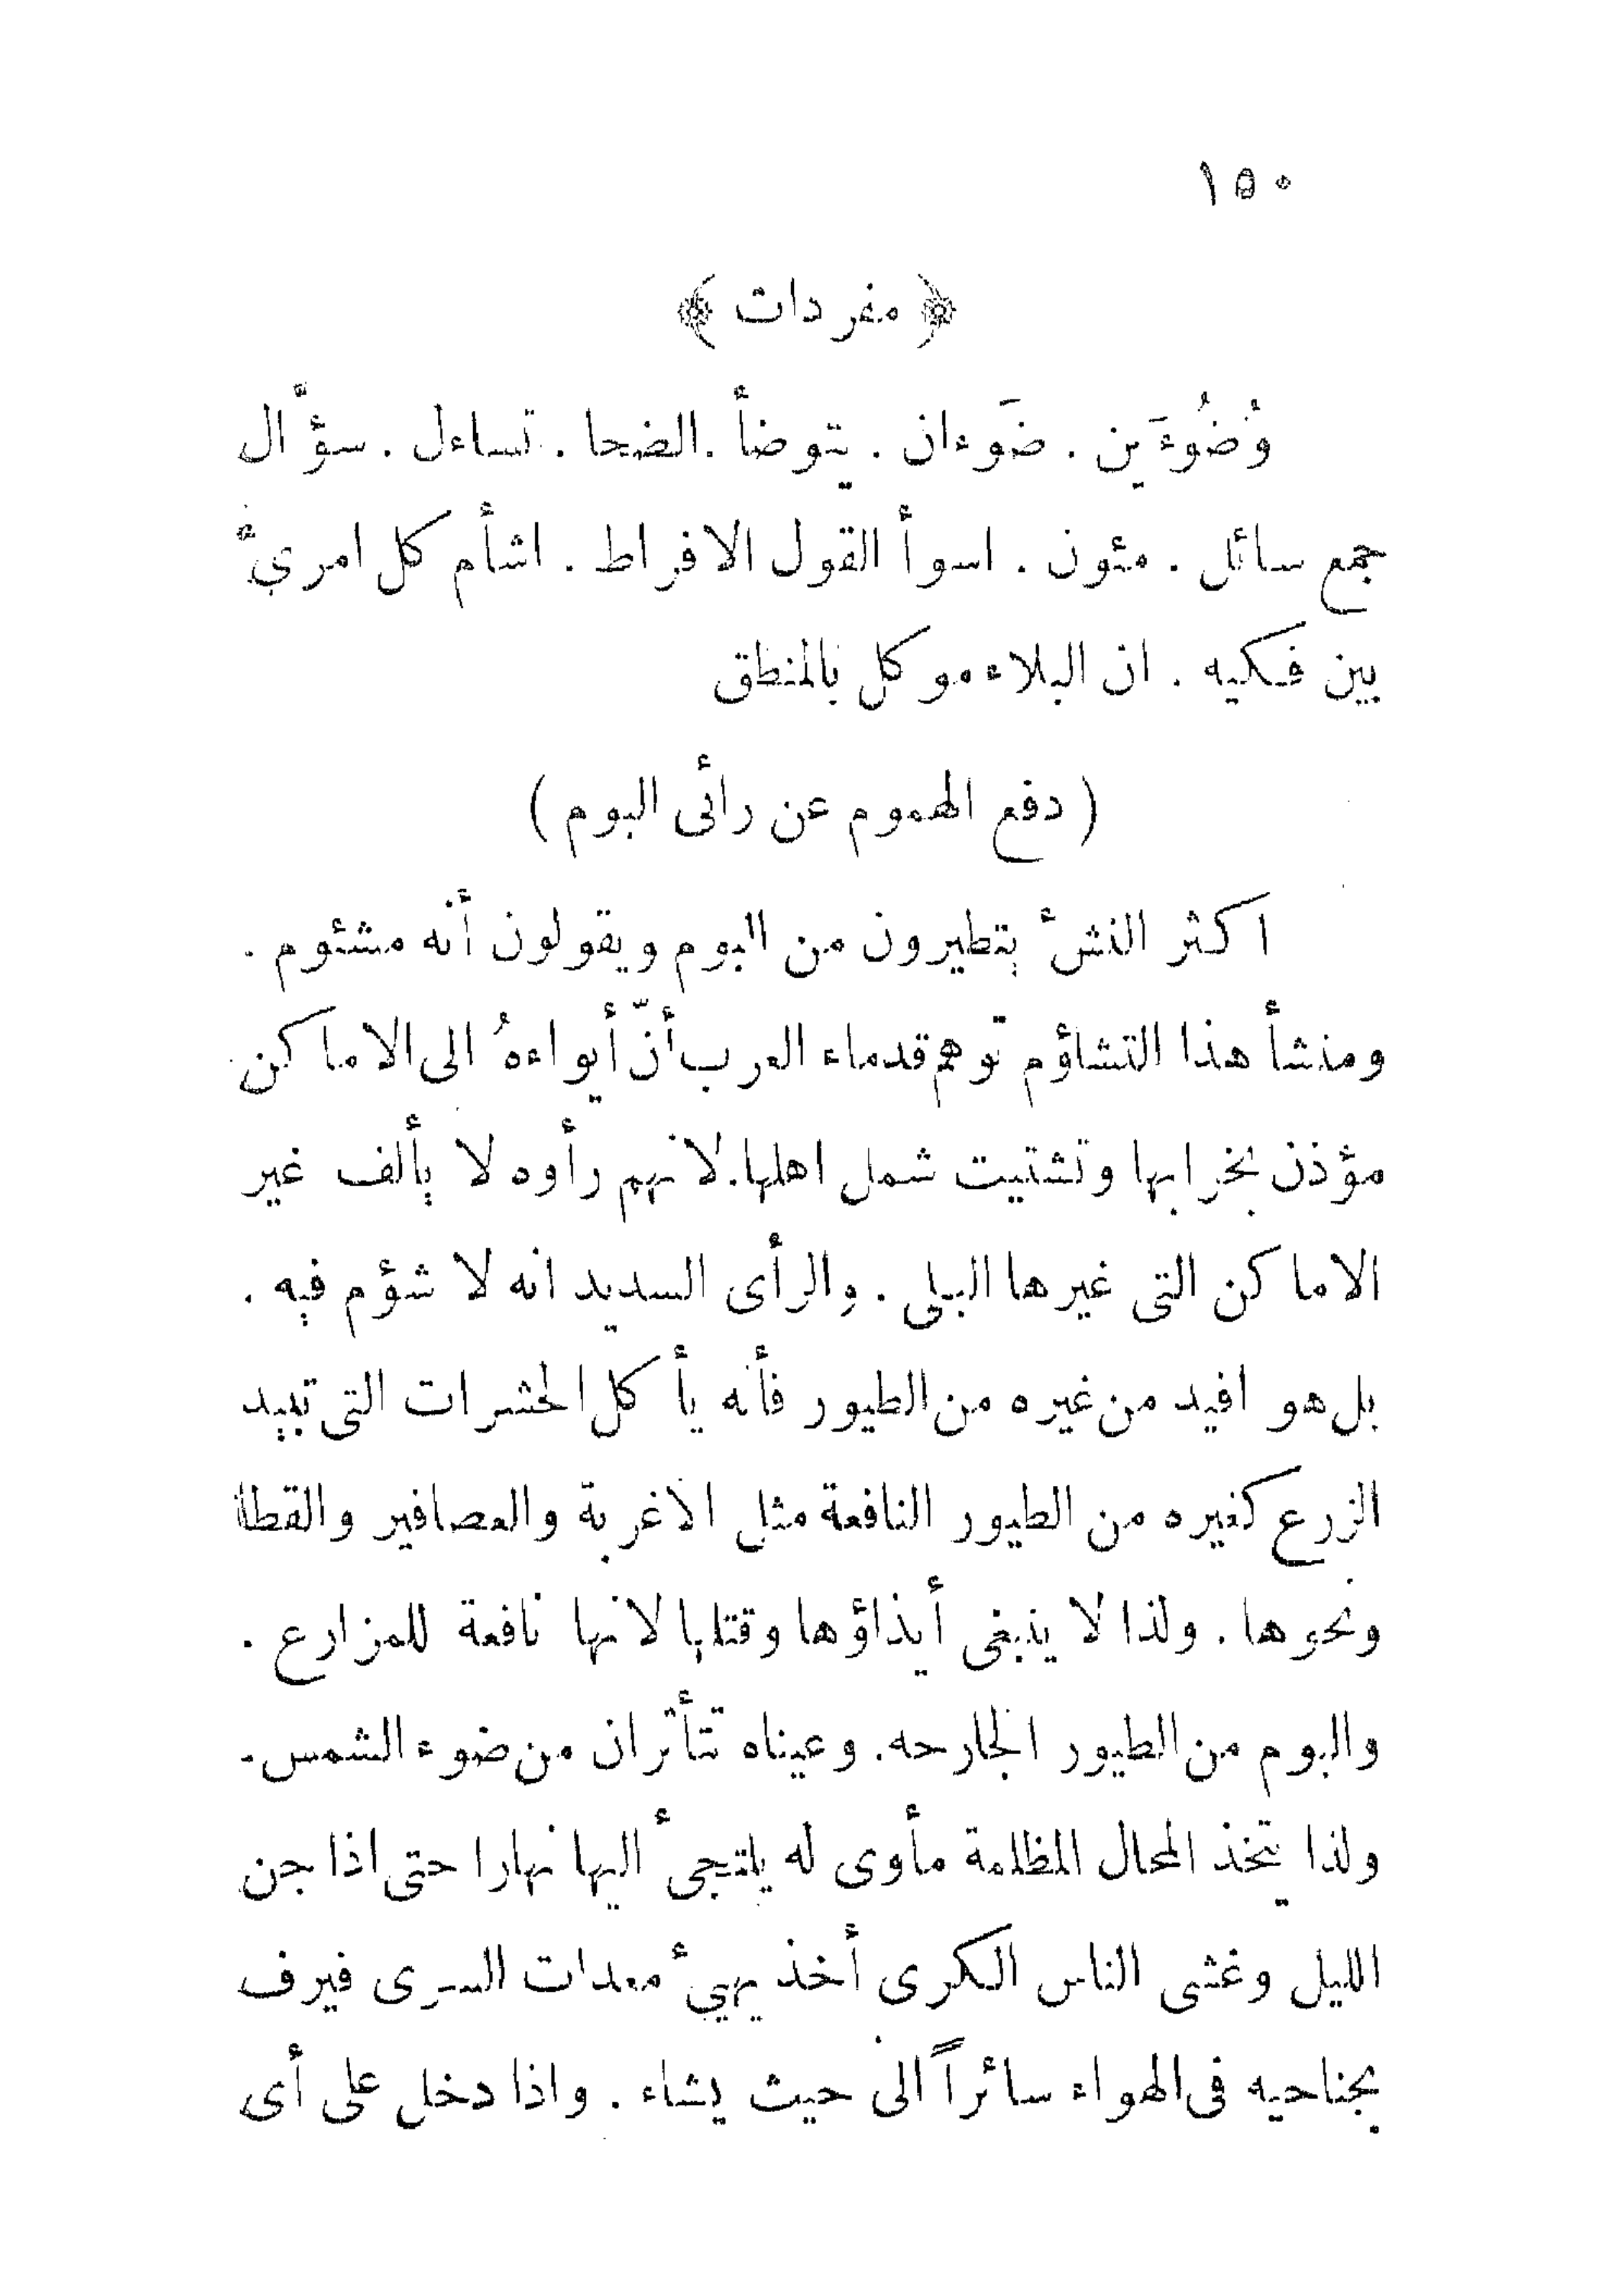 ١٥٠
﴿ مفردات ﴾
وُضُوءَين . ضَوءان . يتوضأ . الضحا . تساءل . سؤَّال
جمع سائل . مئون . اسوأ القول الافراط . اشأم كل امرئٍ
بين فكيه . ان البلاء موكل بالمنطق
( دفع الهموم عن رأئى البوم )
اكثر النشء يتطيرون من البوم ويقولون أنه مشئوم .
ومنشأ هذا التشاؤم توهم قدماء العرب أنّ أيواءهُ الى الاماكن
مؤذن بخرابها وتشتيت شمل اهلها. لانهم رأوه لا يألف غير
الاماكن التى غيرها البلى . والرأى السديد انه لا شؤم فيه .
بل هو افيد من غيره من الطيور فأنه يأكل الحشرات التى تبيد
الزرع كغيره من الطيور النافعة مثل الاغربة والعصافير والقطا
ونحوها . ولذا لا ينبغى أيذاؤها وقتلها لانها نافعة للمزارع .
والبوم من الطيور الجارحه. وعيناه تتأثران من ضوء الشمس-
ولذا يتخذ المحال المظلمة مأوى له يلتجئ اليها نهارا حتى اذا جن
الليل وغشى الناس الكرى أخذ يهيئ معدات السرى فيرف
بجناحيه فى الهواء سائراً الى حيث يشاء . واذا دخل على أى